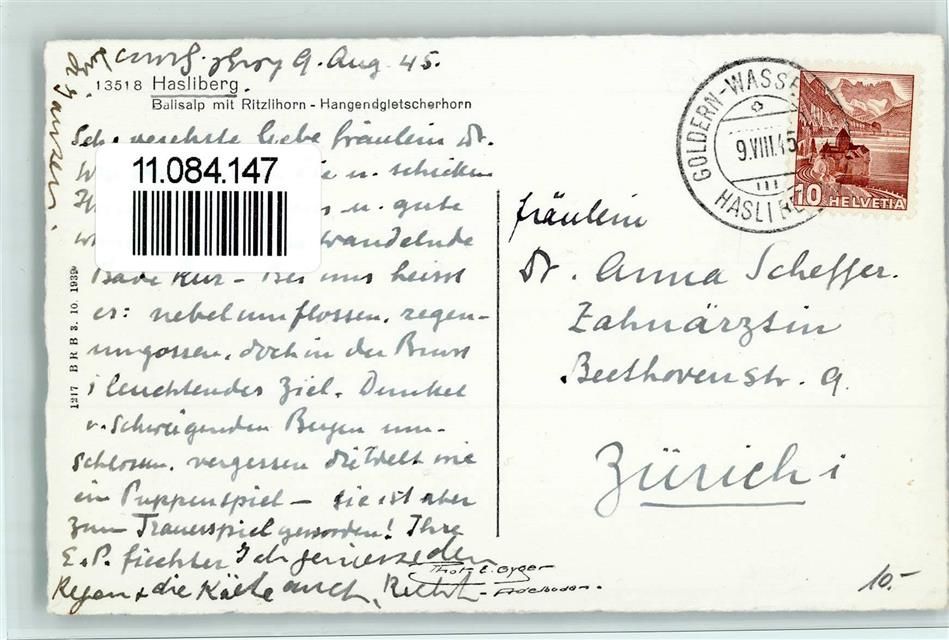 9. Aug. 45.
13518 Hasliberg.
Balisalp mit Ritzlihorn - Hangendgletscherhorn
Sehr verehrte liebe Fräulein Dr.
11.084.147
u. schicken
u. gute
wandelnde
Bade Kur – Bei uns heisst
es: nebelumflossen, regen-
umgossen, doch in der Brust
leuchtendes Ziel. Dunkel
v. schweigenden Bergen um-
schlossen, vergessen die Welt wie
ein Puppenspiel – sie ist aber
zum Trauerspiel geworden! Ihre
E. P. Fiechter Ich geniesse den
Regen & die Kälte auch,
Phot. E. Gyger
Adelboden.
1217 B R B 3. 10. 1939
GOLDERN-WASSE
9.VIII.45
HASLIBE
10 HELVETIA
Fräulein
Dr. Anna Scheffer.
Zahnärztin
Beethovenstr. 9.
Zürich 1
10.-